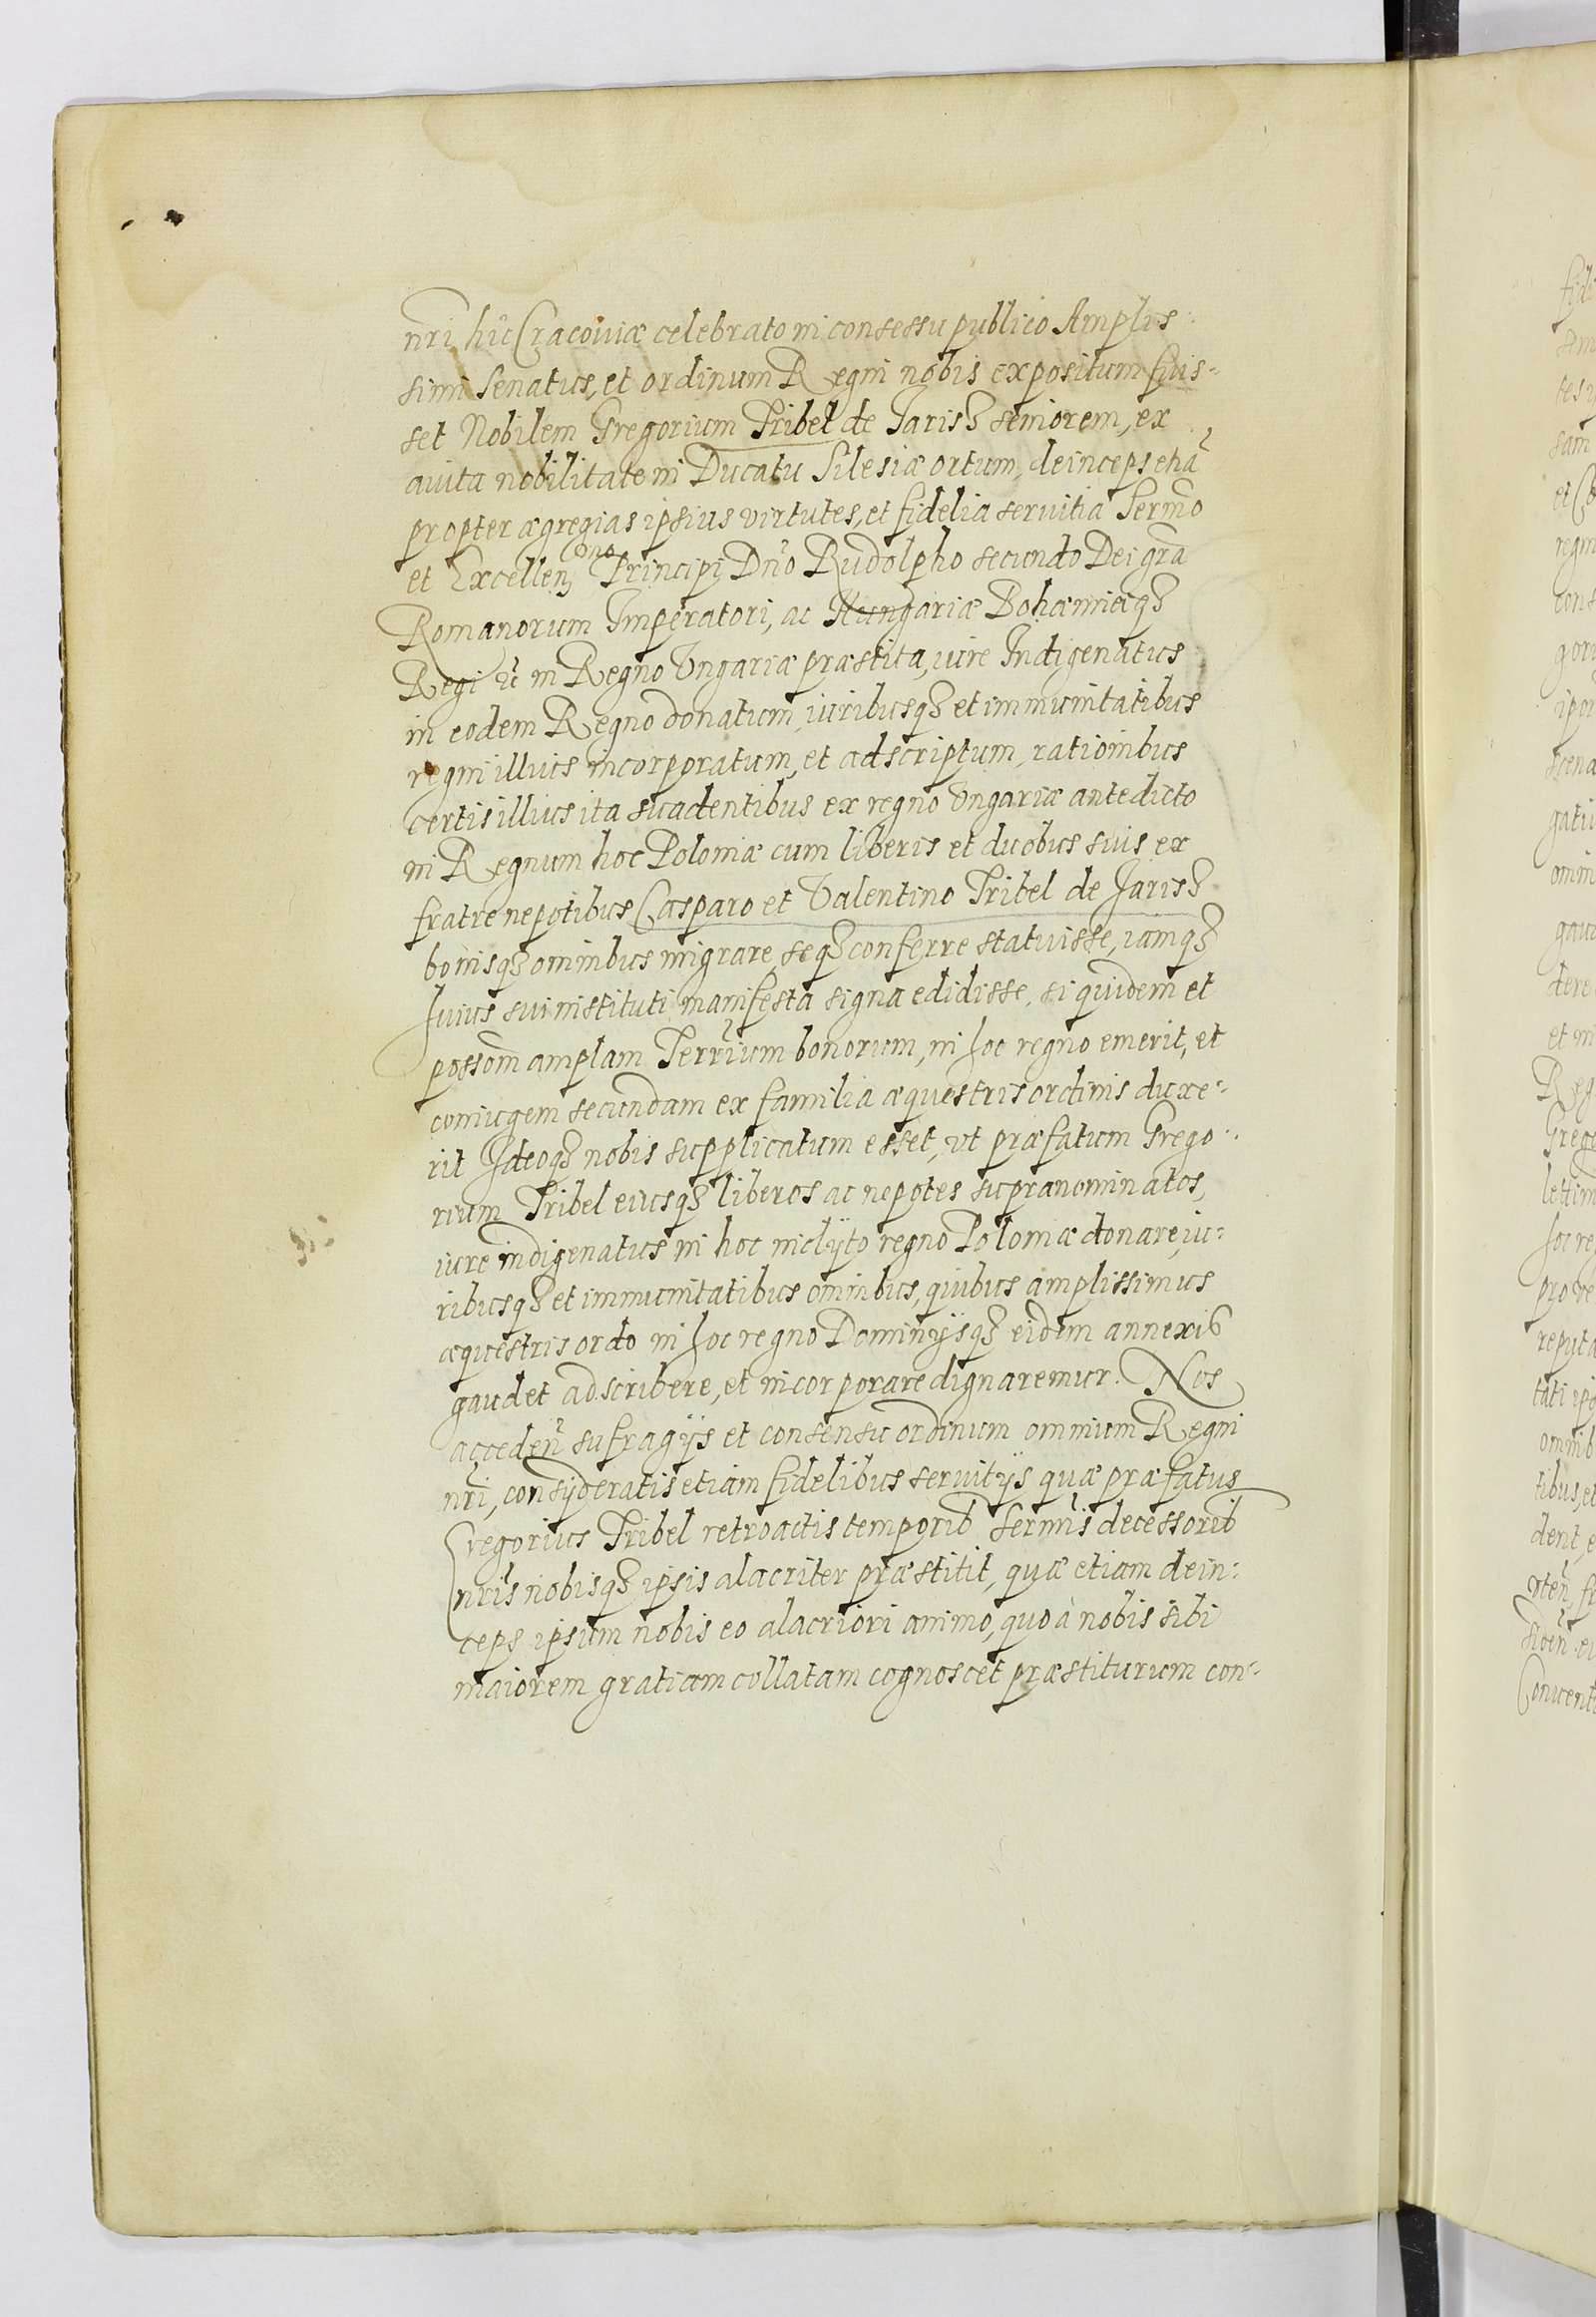 nri hic Cracoviæ celebrato in consessu publico Amplis:
simi Senatus, et ordinum Regni nobis expositum fuis:
set Nobilem Gregorium Tribel de Jarisz seniorem, ex
avita nobilitate in Ducatu Silesiæ ortum, deinceps etia
propter ægregias ipsius virtutes, et fidelia servitia Sermo
et Excellen Dno Principi Dno Rudolpho secundo Dei gra
Romanorum Imperatori, ac Hungariæ Bohæmiæq3
Regi ec in Regno Ungariæ præstita, iure Indigenatus
in eodem Regno donatum, iuribusq3 et immunitatibus
regni illius incorporatum, et adscriptum, rationibus
certis illius ita suadentibus ex regno Ungariæ antedicto
in Regnum hoc Poloniæ cum liberis et duobus suis ex
fratre nepotibus Casparo et Valentino Tribel de Jarisz
bonisq3 omnibus migrare, seq3 conferre statuisse, iamq3
huius sui instituti manifesta signa edidisse, si quidem et
possom amplam Terrium bonorum, in hoc regno emerit, et
coniugem secundam ex familia æquestris ordinis duxe:
rit Ideoq3 nobis supplicatum esset, ut præfatum Grego:
rium Tribel eiusq3 liberos ac nepotes supranominatos,
iure indigenatus in hoc inclyto regno Poloniæ donare, iu:
ribusq3 et immunitatibus omnibus, quibus amplissimus
æquestris ordo in hoc regno Dominijsq3 eidem annexis
gaudet adscribere, et incorporare dignaremur. Nos
acceden sufragijs et consensu ordinum omnium Regni
nri, consyderatis etiam fidelibus servitijs quæ præfatus
Gregorius Tribel retroactis temporib Sermis decessorib
nris nobisq3 ipsis alacriter præstitit, quæ etiam dein:
ceps ipsum nobis eo alacriori animo, quo à nobis sibi
maiorem gratiam collatam cognoscet præstiturum con: